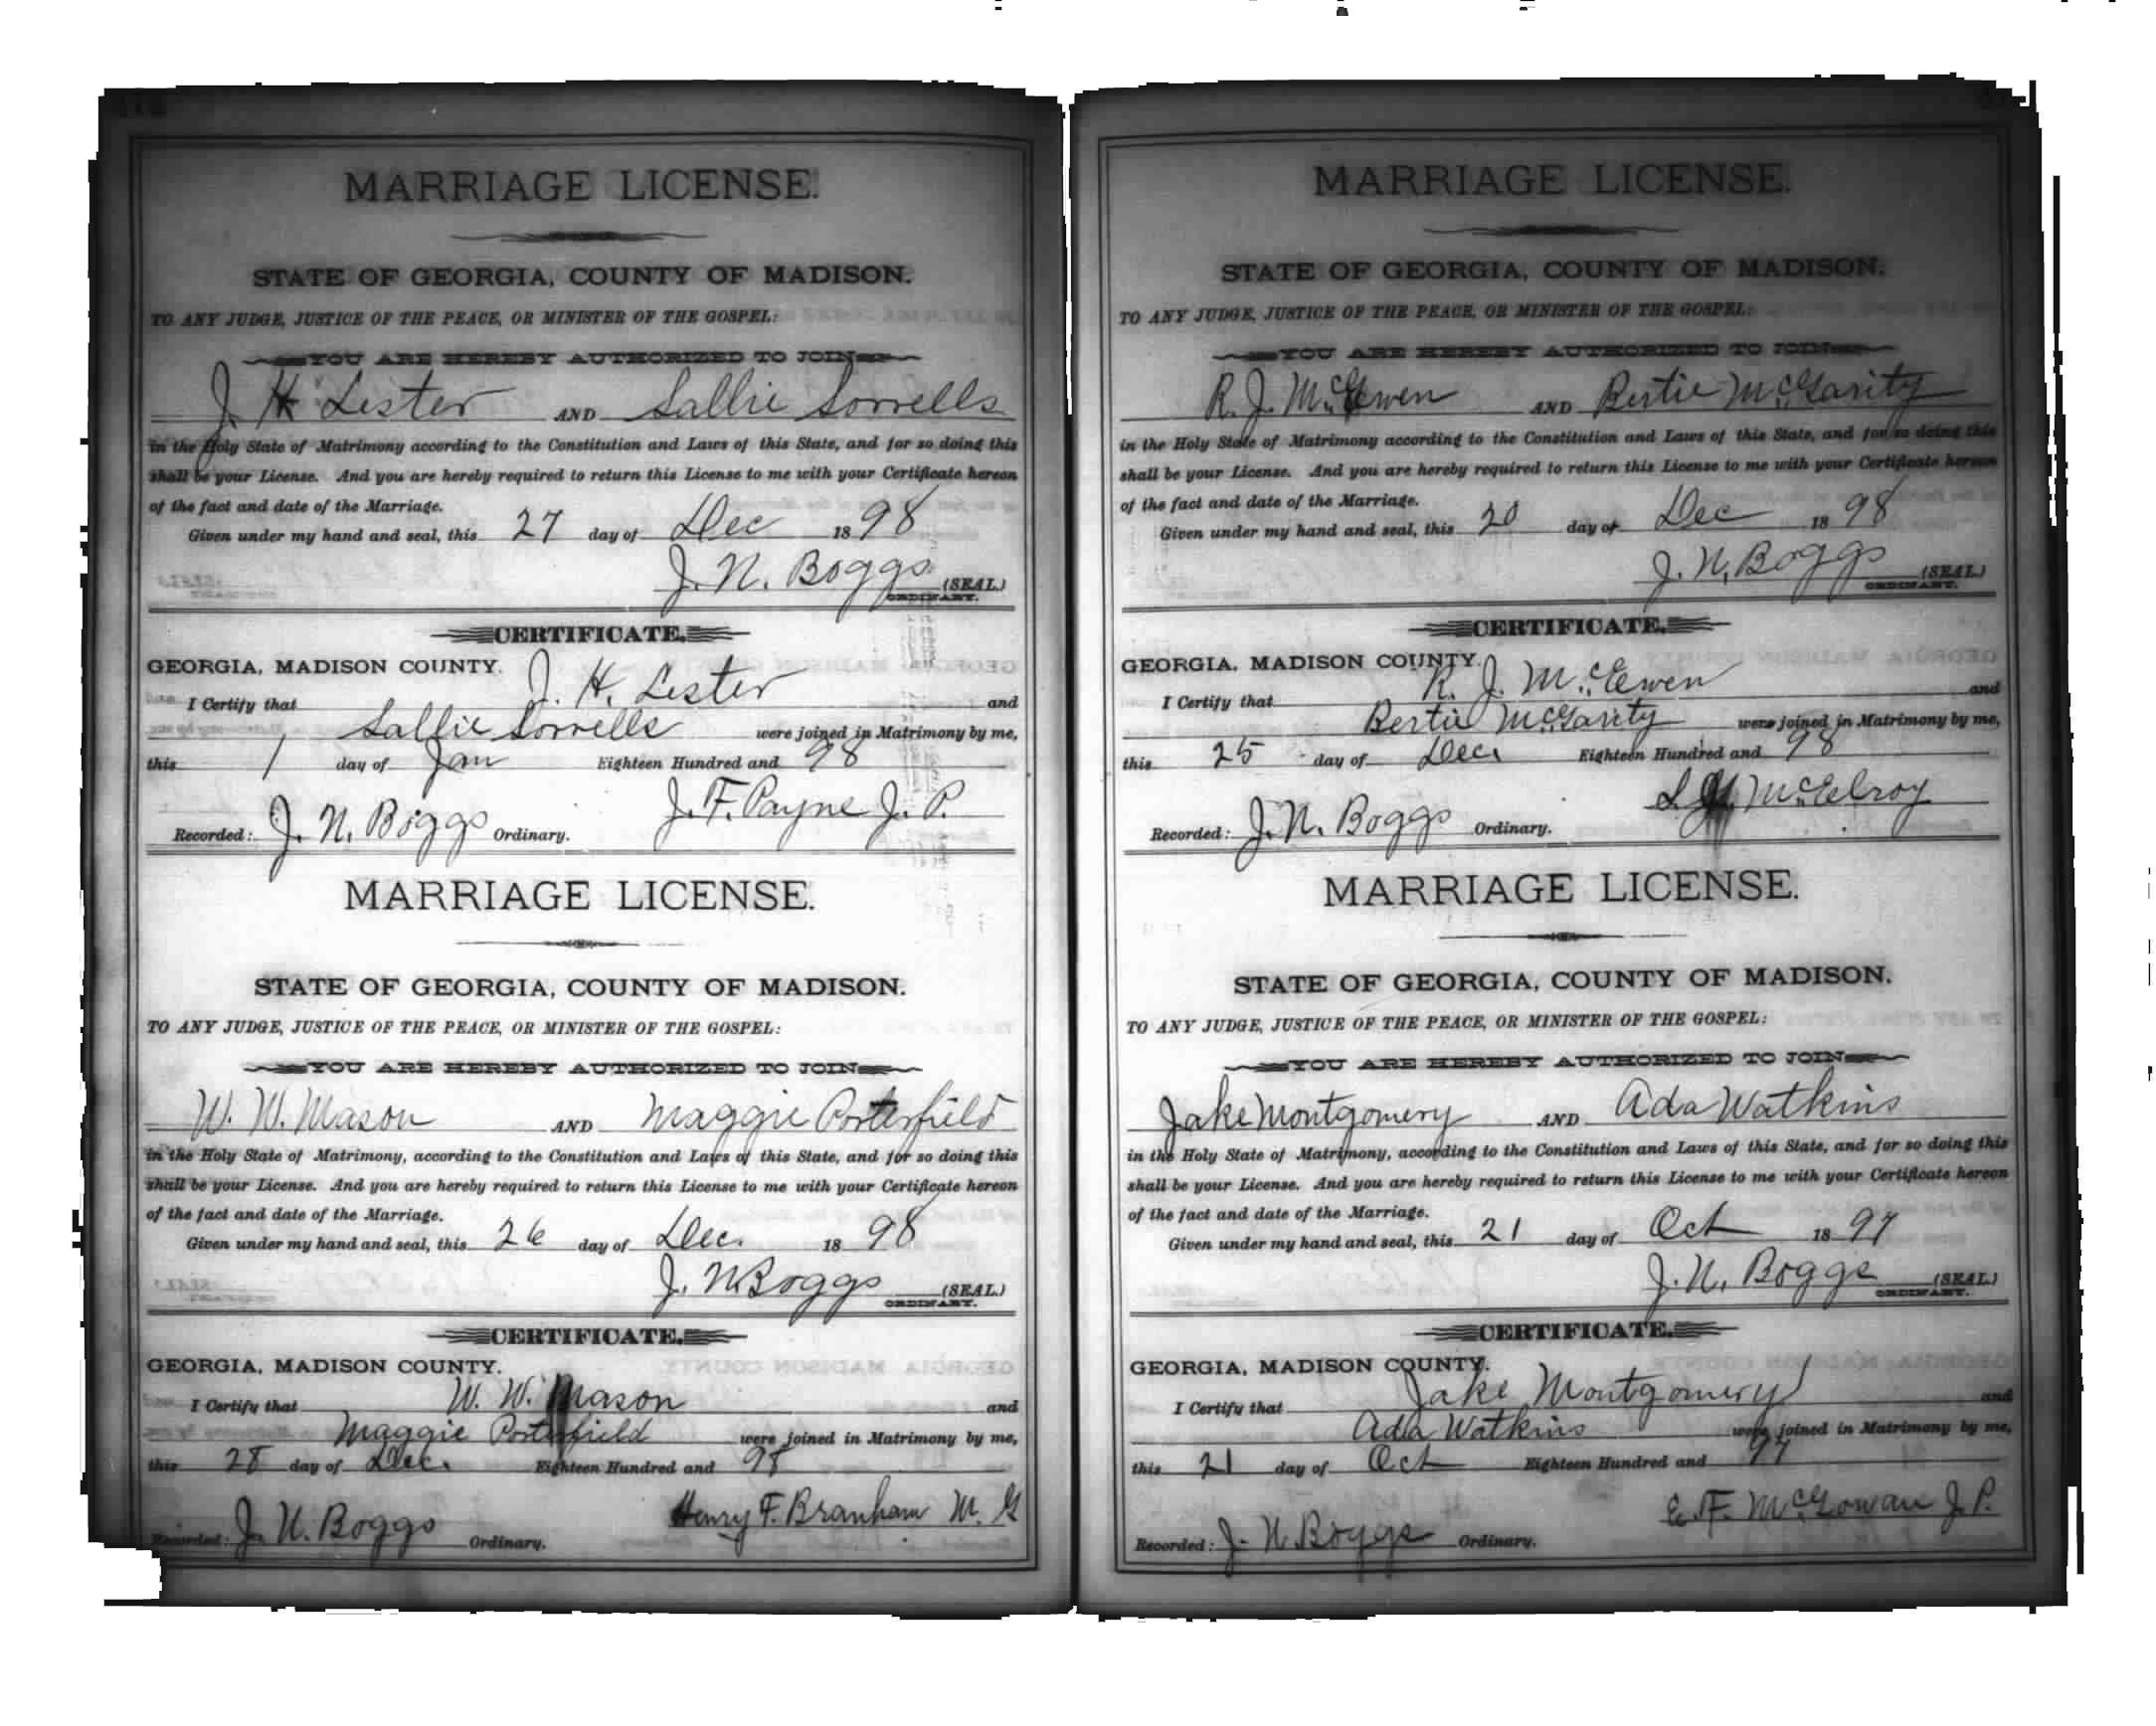 MARRIAGE LICENSE.
STATE OF GEORGIA, COUNTY OF MADISON.
TO ANY JUDGE, JUSTICE OF THE PEACE, OR MINISTER OF THE GOSPEL:
YOU ARE HEREBY AUTHORIZED TO JOIN
J. H. Lester AND Sallie Sorrells
in the Holy State of Matrimony according to the Constitution and Laws of this State, and for so doing this
shall be your License. And you are hereby required to return this License to me with your Certificate hereon
of the fact and date of the Marriage.
Given under my hand and seal, this 27 day of Dec 1898
J. N. Boggs (SEAL.)
ORDINARY.
CERTIFICATE.
GEORGIA, MADISON COUNTY.
I Certify that J. H. Lester and
Sallie Sorrells were joined in Matrimony by me,
this 1 day of Jan Eighteen Hundred and 98
J. F. Payne J. P.
Recorded: J. N. Boggs Ordinary.
MARRIAGE LICENSE.
STATE OF GEORGIA, COUNTY OF MADISON.
TO ANY JUDGE, JUSTICE OF THE PEACE, OR MINISTER OF THE GOSPEL:
YOU ARE HEREBY AUTHORIZED TO JOIN
W. W. Mason AND Maggie Porterfield
in the Holy State of Matrimony, according to the Constitution and Laws of this State, and for so doing this
shall be your License. And you are hereby required to return this License to me with your Certificate hereon
of the fact and date of the Marriage.
Given under my hand and seal, this 26 day of Dec. 1898
J. N. Boggs (SEAL.)
ORDINARY.
CERTIFICATE.
GEORGIA, MADISON COUNTY.
I Certify that W. W. Mason and
Maggie Porterfield were joined in Matrimony by me,
this 28 day of Dec. Eighteen Hundred and 98
Henry F. Branham M. G
Recorded: J. N. Boggs Ordinary.
MARRIAGE LICENSE.
STATE OF GEORGIA, COUNTY OF MADISON.
TO ANY JUDGE, JUSTICE OF THE PEACE, OR MINISTER OF THE GOSPEL:
YOU ARE HEREBY AUTHORIZED TO JOIN
R. J. McEwen AND Bertie McGarity
in the Holy State of Matrimony according to the Constitution and Laws of this State, and for so doing this
shall be your License. And you are hereby required to return this License to me with your Certificate hereon
of the fact and date of the Marriage.
Given under my hand and seal, this 20 day of Dec 1898
J. N. Boggs (SEAL.)
ORDINARY.
CERTIFICATE.
GEORGIA, MADISON COUNTY.
I Certify that R. J. McEwen and
Bertie McGarity were joined in Matrimony by me,
this 25 day of Dec. Eighteen Hundred and 98
McElroy
Recorded: J. N. Boggs Ordinary.
MARRIAGE LICENSE.
STATE OF GEORGIA, COUNTY OF MADISON.
TO ANY JUDGE, JUSTICE OF THE PEACE, OR MINISTER OF THE GOSPEL:
YOU ARE HEREBY AUTHORIZED TO JOIN
Jake Montgomery AND Ada Watkins
in the Holy State of Matrimony, according to the Constitution and Laws of this State, and for so doing this
shall be your License. And you are hereby required to return this License to me with your Certificate hereon
of the fact and date of the Marriage.
Given under my hand and seal, this 21 day of Oct 1897
J. N. Boggs (SEAL.)
ORDINARY.
CERTIFICATE.
GEORGIA, MADISON COUNTY.
I Certify that Jake Montgomery and
Ada Watkins were joined in Matrimony by me,
this 21 day of Oct Eighteen Hundred and 97
E. F. McGowan J. P.
Recorded: J. N. Boggs Ordinary.